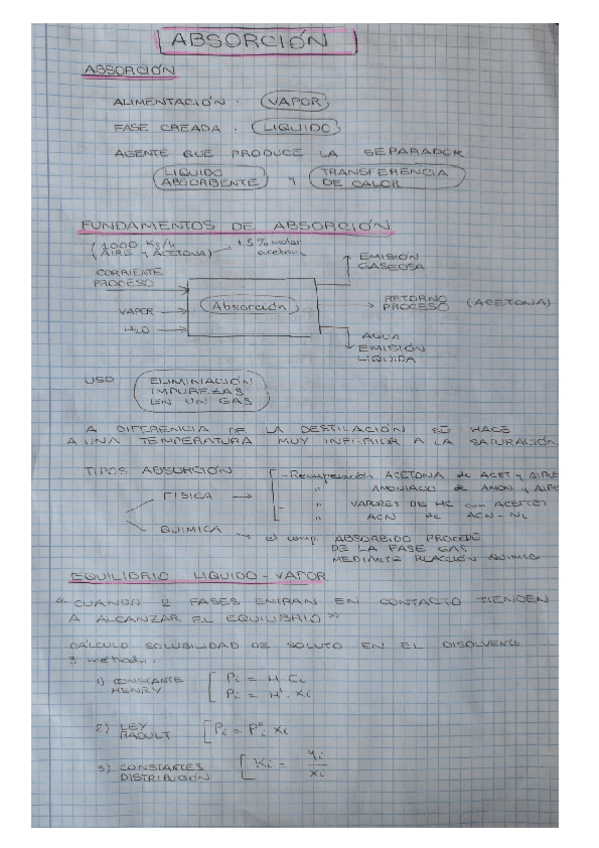 ABSORCIÓN
ABSORCIÓN
ALIMENTACIÓN · VAPOR
FASE CREADA · LIQUIDO
AGENTE QUE PRODUCE LA SEPARADOR
LIQUIDO ABSORBENTE Y TRANSFERENCIA DE CALOR
FUNDAMENTOS DE ABSORCIÓN
(1000 Kg/h AIRE y ACETONA) 1.5% molar acetona
CORRIENTE PROCESO
VAPOR
H2O
Absorción
EMISIÓN GASEOSA
RETORNO PROCESO (ACETONA)
AGUA
EMISIÓN LIQUIDA
USO ELIMINIACIÓN IMPUREZAS EN UN GAS
A DIFERENCIA DE LA DESTILACIÓN SE HACE
A UNA TEMPERATURA MUY INFERIOR A LA SATURACIÓN
TIPOS ABSORCIÓN
FISICA
- Recuperación ACETONA de ACET y AIRE
" AMONIACO de AMON y AIRE
- " VAPORES DE HC con ACEITES
- " ACN de ACN-N2
QUIMICA
el comp. ABSORBIDO PROCEDE
DE LA FASE GAS
MEDIANTE REACCIÓN QUIMICA
EQUILIBRIO LIQUIDO-VAPOR
"CUANDO 2 FASES ENTRAN EN CONTACTO TIENDEN
A ALCANZAR EL EQUILIBRIO"
CÁLCULO SOLUBILIDAD DE SOLUTO EN EL DISOLVENTE
3 métodos:
1) CONSTANTE HENRY
Pi = H · Ci
Pi = H' · Xi
2) LEY RAOULT
Pi = P°i Xi
3) CONSTANTES DISTRIBUCIÓN
Ki = yi / xi